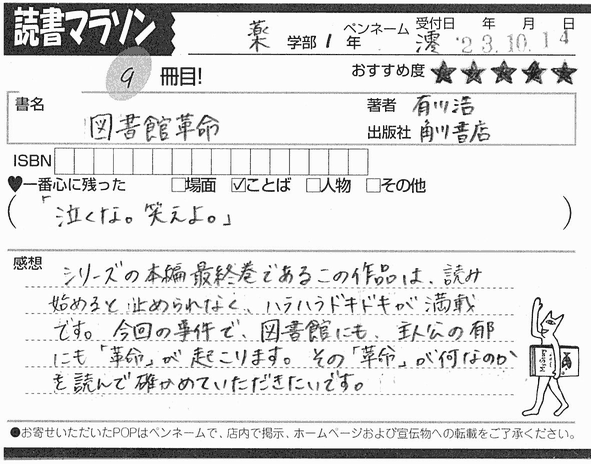 読書マラソン
薬 学部 1 年 ペンネーム 澪 受付日 年 月 日 '23.10.14
9 冊目! おすすめ度 ★★★★★
書名 図書館革命
著者 有川浩
出版社 角川書店
ISBN
♥一番心に残った □場面 ☑ことば □人物 □その他
(「泣くな。笑えよ。」)
感想
シリーズの本編最終巻であるこの作品は、読み
始めると止められなく、ハラハラドキドキが満載
です。今回の事件で、図書館にも、主人公の郁
にも「革命」が起こります。その「革命」が何なのか
を読んで確かめていただきたいです。
Mystery
●お寄せいただいたPOPはペンネームで、店内で掲示、ホームページおよび宣伝物への転載をご了承ください。